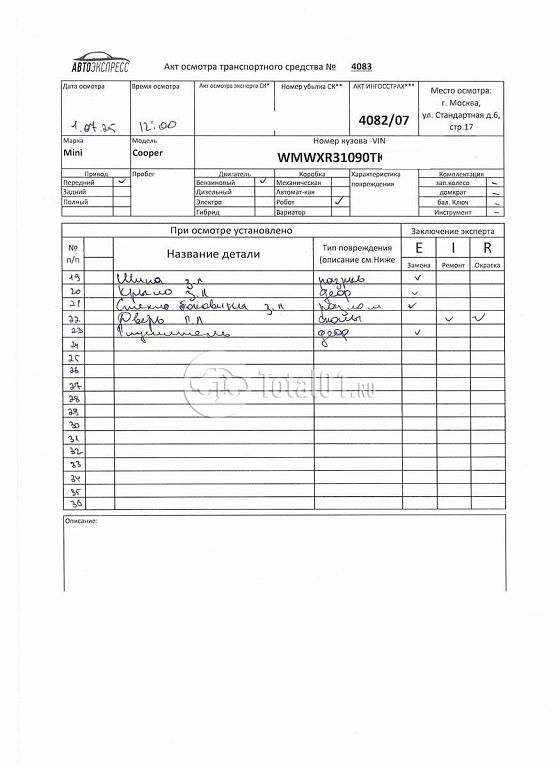 АВТОЭКСПРЕСС
Акт осмотра транспортного средства № 4083
Дата осмотра Время осмотра Акт осмотра эксперта СК* Номер убытка СК** АКТ ИНГОССТРАХ*** Место осмотра:
г. Москва,
ул. Стандартная д.6,
стр.17
1.07.25 12:00 4082/07
Марка Модель Номер кузова -VIN
Mini Cooper WMWXR31090TK
Привод Пробег Двигатель Коробка Характеристика повреждения Комплектация
Передний Бензиновый Механическая зап.колесо
Задний Дизельный Автомат-кая домкрат
Полный Электро Робот бал. Ключ
Гибрид Вариатор Инструмент
При осмотре установлено Заключение эксперта
№ п/п Название детали Тип повреждения (описание см.Ниже E I R
Замена Ремонт Окраска
19 Шина з.л разрыв
20 Крыло з.л дефор
21 Стекло боковины з.л разлом
22 Дверь п.л сколы
23 Глушитель дефор
24
25
26
27
28
29
30
31
32
33
34
35
36
Total01.RU
Описание: